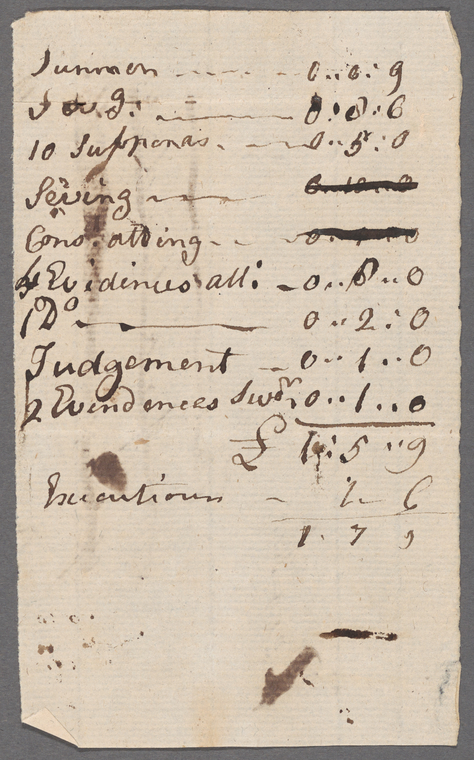 Summon 0..0..9
0..8..6
10 Suppenas 0..5..0
Seving
Cons. atting
4 Evidinces att: 0..8..0
1 Do 0..2..0
Judgement 0..1..0
2 Evendences Swor 0..1..0
£ 1..5..9
Executioun 6
1. 7 9